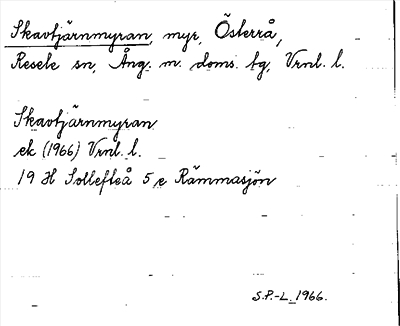 Skavtjärnmyran, myr, Österrå,
Resele sn, Ång. m. doms. tg, Vrnl. l.
Skavtjärnmyran
ek (1966) Vrnl. l.
19 H Sollefteå 5 e Rämmasjön
S.P.-L. 1966.